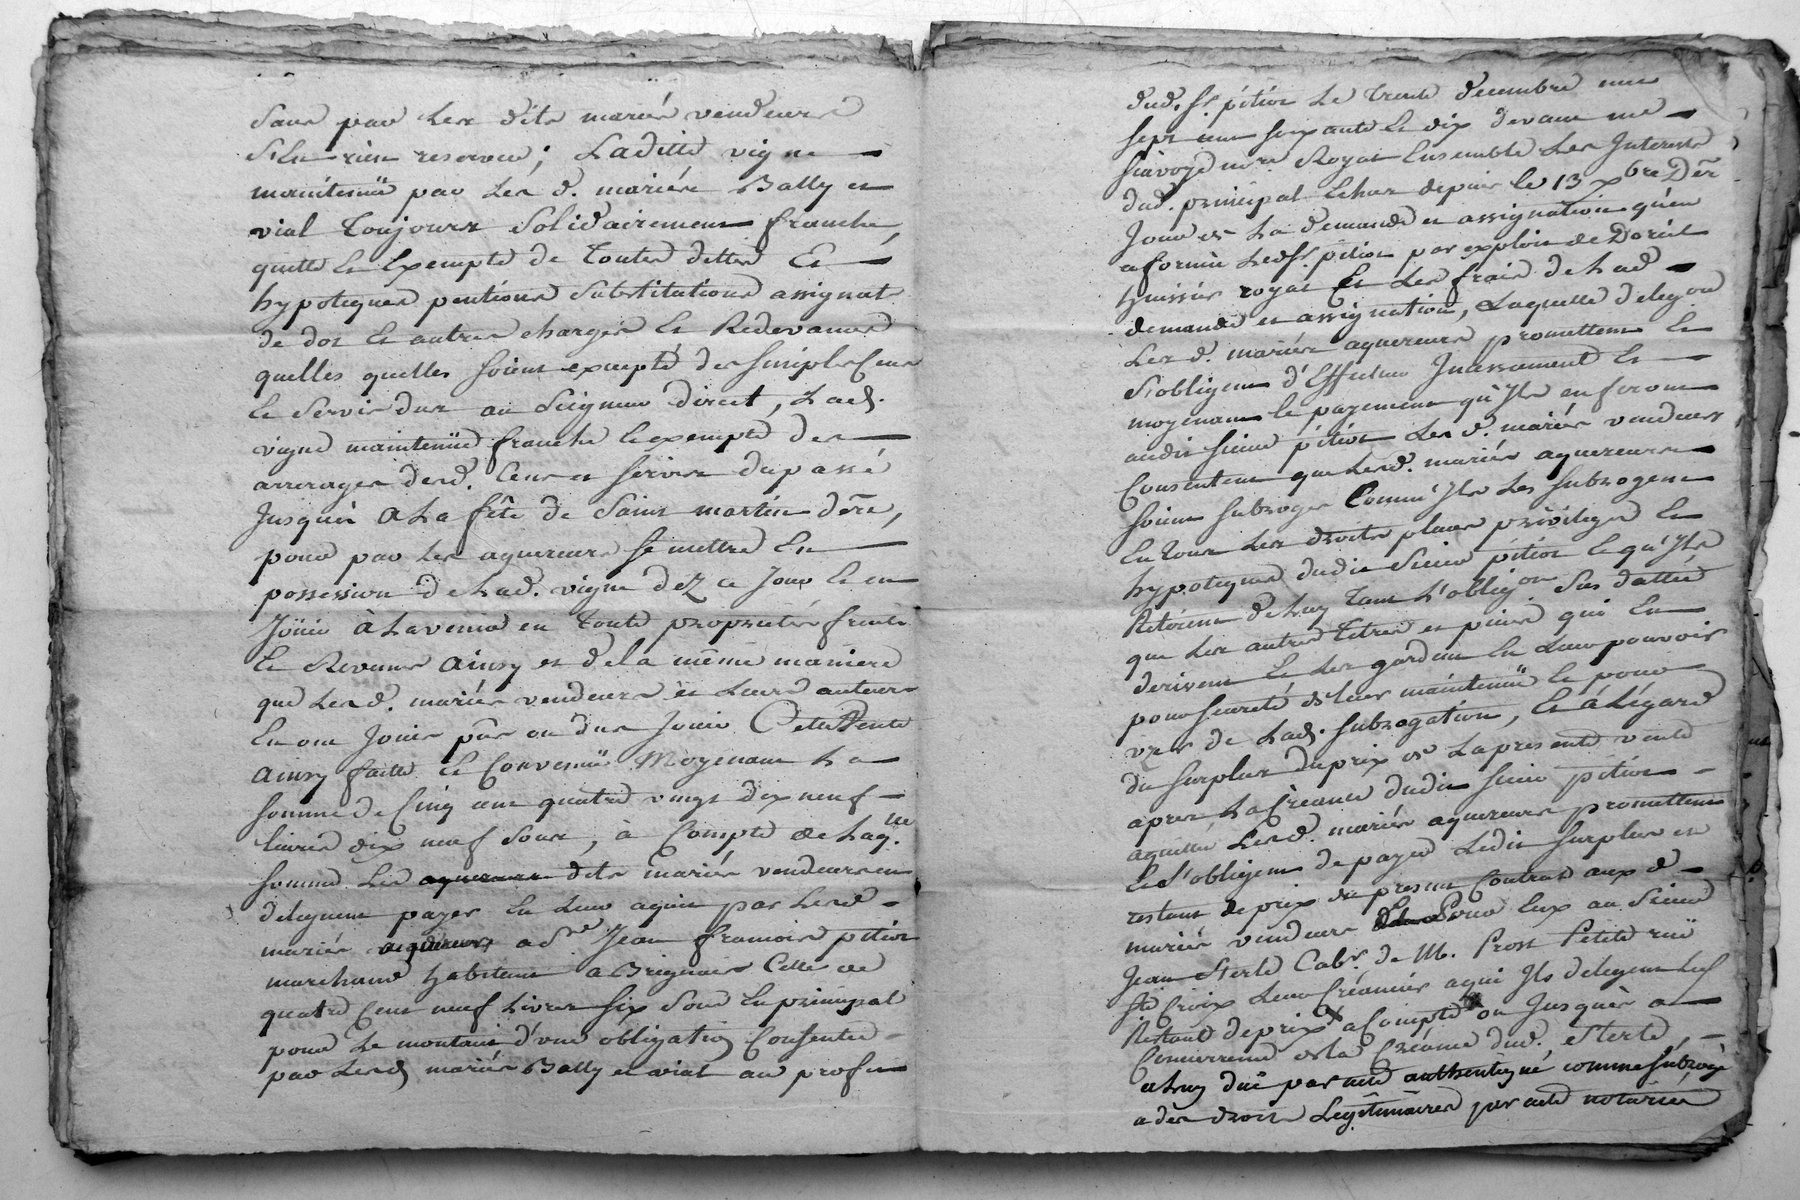 Sans par Les dits mariés vendeurs
S'En rien reserver; Laditte vigne
maintenüe par Les d. mariés Bally et
vial Toujours Solidairement franche,
quitte Et Exempte de Toutes dettes Et
hypoteques pentions Substitutions assignat
de dot Et autres charges Et Redevances
quelles quelles soient excepté des simples Cens
Et Servis dus au Seigneur direct, Lad.
vigne maintenüe franche Et exempte des
arrerages desd. Cens et servis du passé
Jusques a La fête de Saint martin dêre,
pour par Les aquereurs se mettre En
possession de Lad. vigne déz ce Jour Et en
Joüir à Lavenir en Toute proprieté fruits
Et Revenus ainsy et de la même maniere
que Lesd. mariés vendeurs et Leurs auteurs
En ont Joüis pûs ou dus Joüir Cette Vente
ainsy faitte Et Convenüe Moyenant La
somme de Cinq cent quatre vingt dix neuf
livres dix neuf Sous, à Compte de Laq.lle
somme Les aquereurs dits mariés vendeurs en
deleguent payer En Leur aquit par Lesd.
mariés aquereurs a Sr Jean francois pition
marchand habitant a Brignais Celle de
quatre Cent neuf Livres six Sous En principal
pour Le montant d'une obligation Consentie
par Lesd. mariés Bally et vial au profit
dud. Sr. pition Le Trente decembre mil
sept cent soixante Et dix devant me
not.re Royal Ensemble Les Interests
dud. principal Echus depuis le 13 Xbre Dêr
Jour de La demande et assignation qu'en
a formée Led. Sr. pition par exploit de
huissier royal Et Les frais de Lad.
demande et assignation, Laquelle deleg.on
Les d. mariés aquereurs promettent Et
s'obligent d'Effectuer Incessament Et
moyenant le payement qu'Ils en feront
audit sieur pition Les d. mariés vendeurs
Consentent que Lesd. mariés aquereurs
soient subrogés Comme Ils Les subrogent
En tous Les droits places privileges Et
hypoteques dudit Sieur pition Et qu'Ils
Retirent de Luy Tant L'oblig.on Sus dattée
que Les autres Titres et pieces qui En
derivent Et Les gardent En Leur pouvoir
pour Seureté de leur maintenüe Et pour
de Lad. subrogation, Et à Légard
du surplus du prix de La presente vente
apres La Créance dudit sieur pition
aquittée Lesd. mariés aquereurs promettent
Et s'obligent de payer Ledit surplus et
restant de prix du present Contrat aux d.
mariés vendeurs Pour Eux au Sieur
Jean Sterlé Cab.r de M. Prost Petite rüe
Ste Croix Leur Créancier aqui Ils deleguent Led.
Restant de prix a Compte ou Jusques a
Concurrence de la Créance dud. Sterlé
a Luy dûe par acte authentique comme subrogé
a des droits Legitimaires par acte notariée